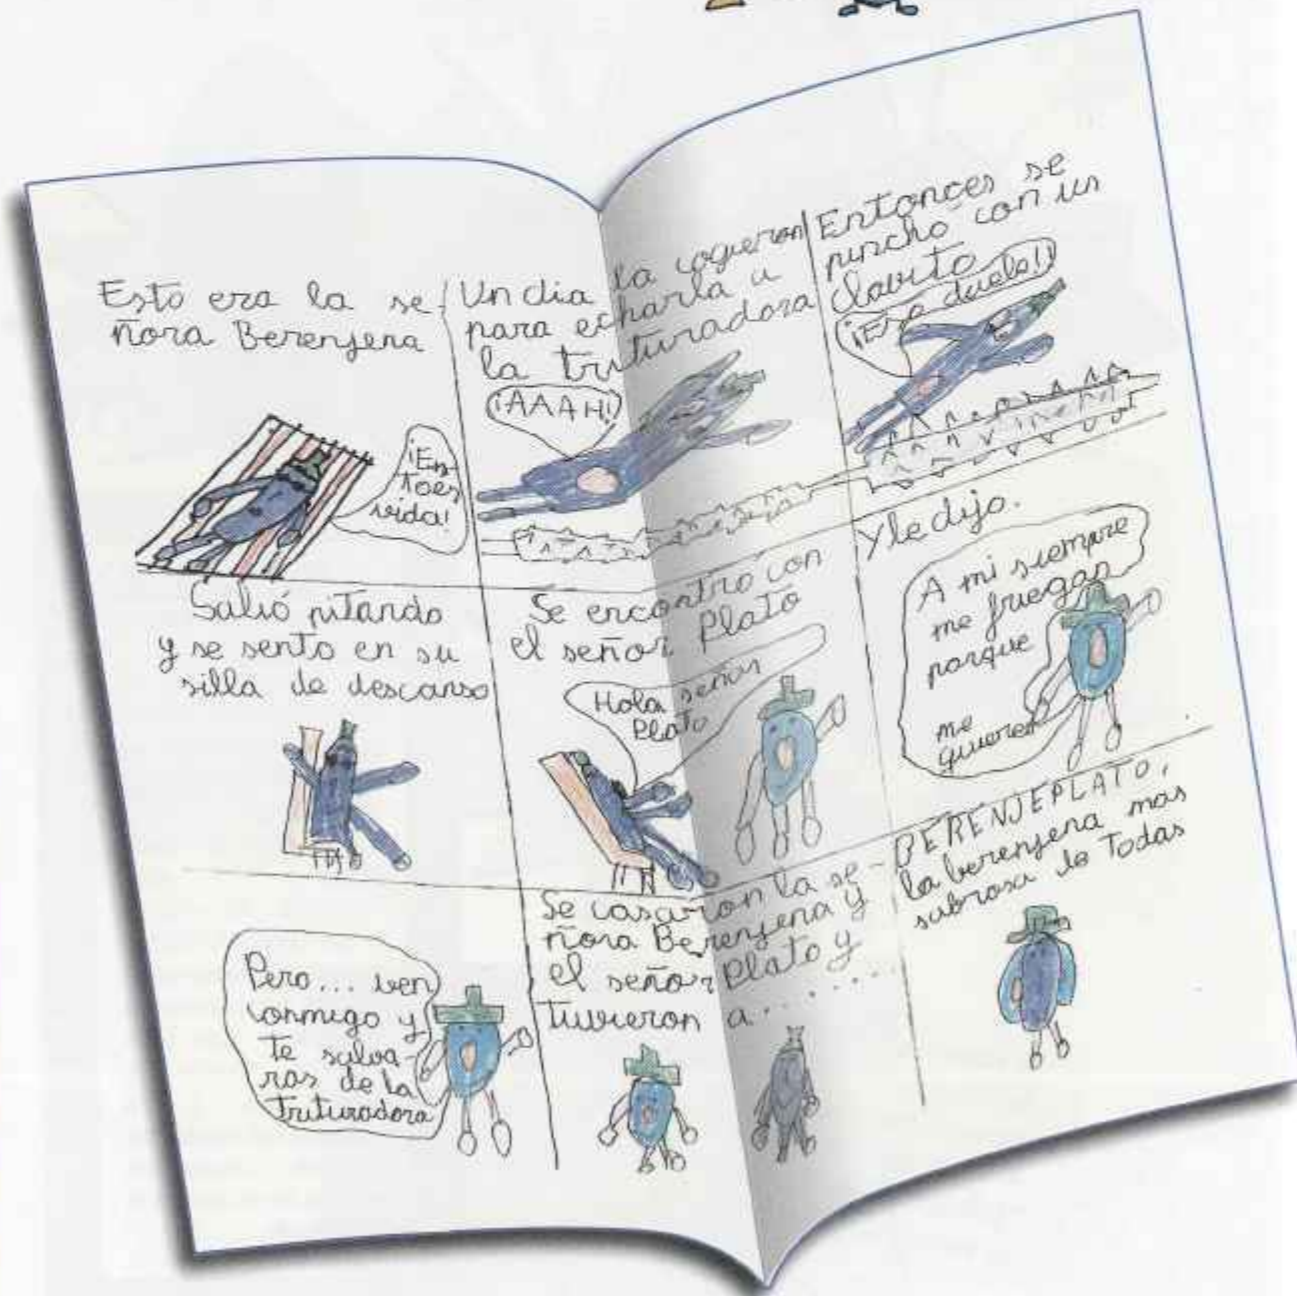 Esto era la se-
ñora Berenjena
¡Es-
to es
vida!
Un dia la cogieron
para echarla a
la trituradora
¡AAAH!
Entonces se
pincho con un
clavito
¡Eso duele!
Salió pitando
y se sento en su
silla de descanso
Se encontro con
el señor Plato
Hola señor
Plato
Y le dijo.
A mi siempre
me friegan
porque
me
quieren
Pero... ven
conmigo y
te salva-
ras de la
trituradora
Se casaron la se-
ñora Berenjena y
el señor Plato y
tuvieron a.......
BERENJEPLATO,
la berenjena mas
sabrosa de todas